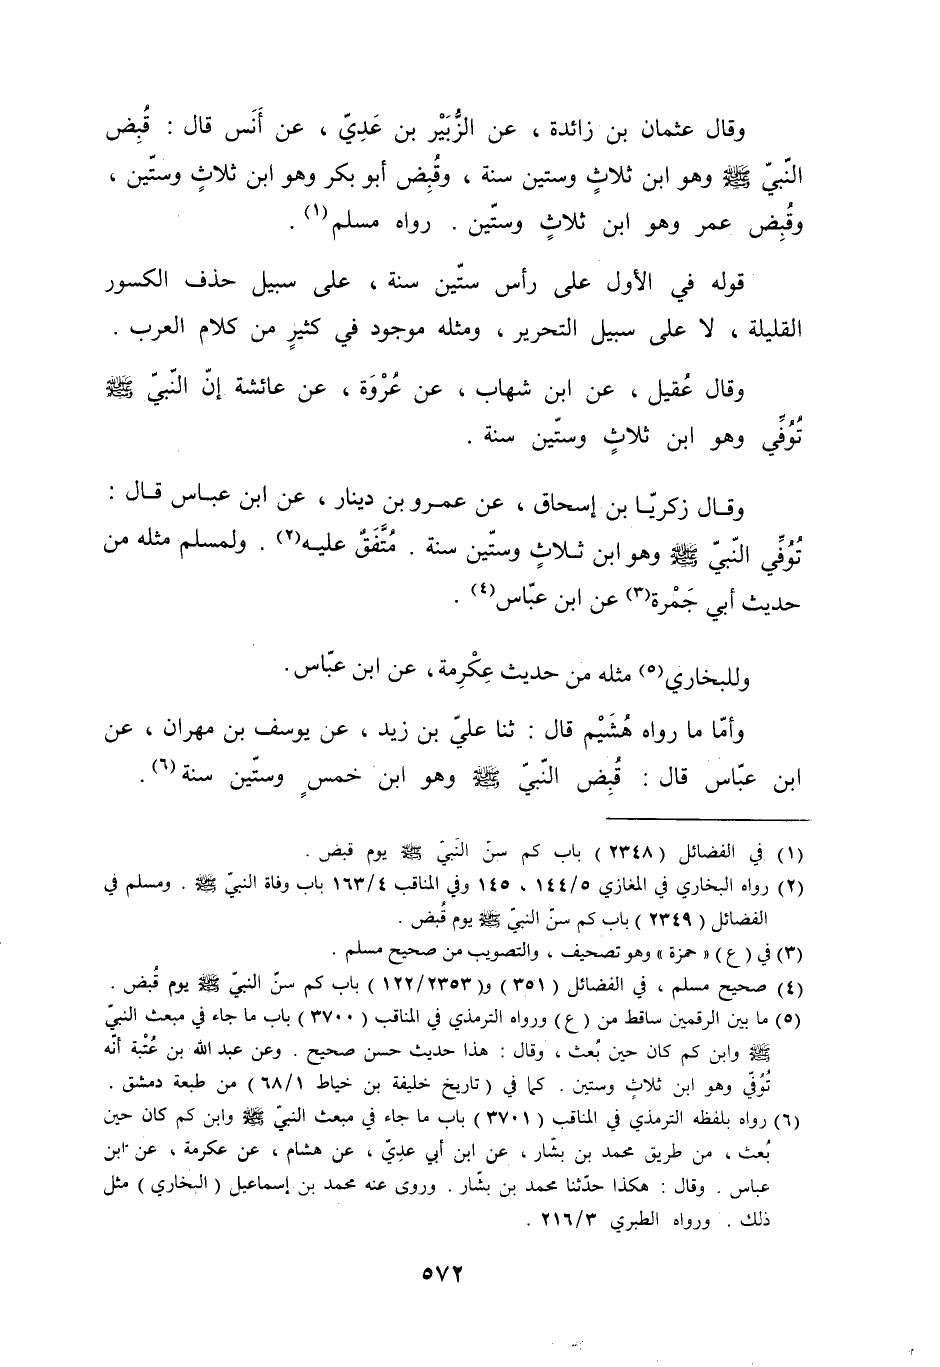 وقال عثمان بن زائدة ، عن الزُّبَيْر بن عَدِيّ ، عن أَنَس قال : قُبِض
النّبيّ ﷺ وهو ابن ثلاثٍ وستين سنة ، وقُبِض أبو بكر وهو ابن ثلاثٍ وستّين ،
وقُبِض عمر وهو ابن ثلاثٍ وستّين . رواه مسلم(١) .
قوله في الأول على رأس ستّين سنة ، على سبيل حذف الكسور
القليلة ، لا على سبيل التحرير ، ومثله موجود في كثيرٍ من كلام العرب .
وقال عُقيل ، عن ابن شهاب ، عن عُرْوَة ، عن عائشة إنّ النّبيّ ﷺ
تُوُفّي وهو ابن ثلاثٍ وستّين سنة .
وقال زكريّا بن إسحاق ، عن عمرو بن دينار ، عن ابن عباس قال :
تُوُفّي النّبيّ ﷺ وهو ابن ثلاثٍ وستّين سنة . مُتَّفَقٌ عليه(٢) . ولمسلم مثله من
حديث أبي جَمْرة(٣) عن ابن عبّاس(٤) .
وللبخاري(٥) مثله من حديث عِكْرِمة ، عن ابن عبّاس .
وأمّا ما رواه هُشَيْم قال : ثنا عليّ بن زيد ، عن يوسف بن مهران ، عن
ابن عبّاس قال : قُبِض النّبيّ ﷺ وهو ابن خمسٍ وستّين سنة(٦) .
(١) في الفضائل ( ٢٣٤٨ ) باب كم سنّ النبيّ ﷺ يوم قبض .
(٢) رواه البخاري في المغازي ١٤٤/٥ ، ١٤٥ وفي المناقب ١٦٣/٤ باب وفاة النبيّ ﷺ . ومسلم في
الفضائل ( ٢٣٤٩ ) باب كم سنّ النبيّ ﷺ يوم قُبض .
(٣) في ( ع ) « حمزة » وهو تصحيف ، والتصويب من صحيح مسلم .
(٤) صحيح مسلم ، في الفضائل ( ٣٥١ ) و( ١٢٢/٢٣٥٣ ) باب كم سنّ النبيّ ﷺ يوم قُبض .
(٥) ما بين الرقمين ساقط من ( ع ) ورواه الترمذي في المناقب ( ٣٧٠٠ ) باب ما جاء في مبعث النبيّ
ﷺ وابن كم كان حين بُعث ، وقال : هذا حديث حسن صحيح . وعن عبد الله بن عُتْبة أنّه
تُوُفّي وهو ابن ثلاثٍ وستين . كما في ( تاريخ خليفة بن خياط ٦٨/١ ) من طبعة دمشق .
(٦) رواه بلفظه الترمذي في المناقب ( ٣٧٠١ ) باب ما جاء في مبعث النبيّ ﷺ وابن كم كان حين
بُعث ، من طريق محمد بن بشّار ، عن ابن أبي عديّ ، عن هشام ، عن عكرمة ، عن ابن
عباس . وقال : هكذا حدّثنا محمد بن بشّار . وروى عنه محمد بن إسماعيل ( البخاري ) مثل
ذلك . ورواه الطبري ٢١٦/٣ .
٥٧٢